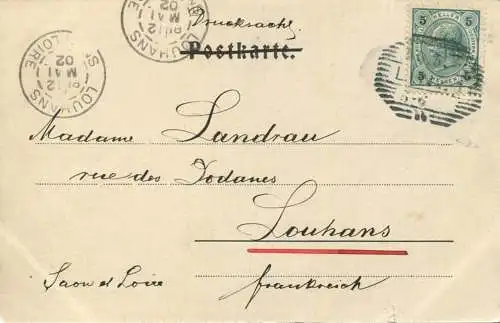 Drucksache
Postkarte.
LOUHANS
12
MAI
02
LOIRE
LOUHANS
12
MAI
02
5 5
5 5
Madame Landrau
rue des Dodanes
Louhans
Saon et Loire
frankreich